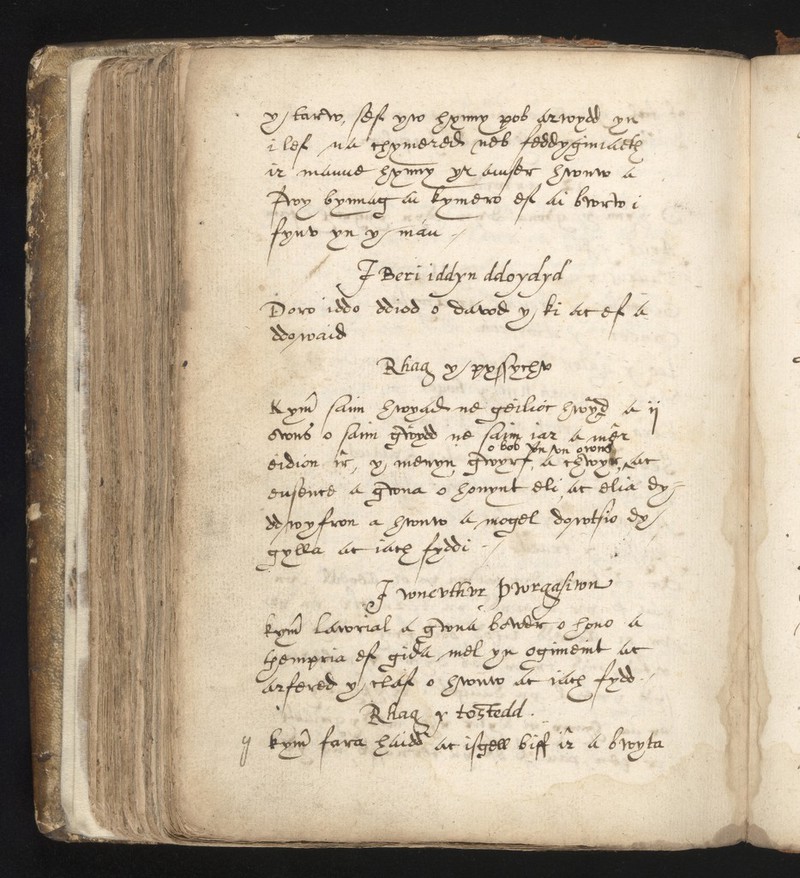 y tarw, sef yw hynny pob arwydd yn
i lef na chymered neb feddyginiaeth
ir manne hynny yr amser hwnw a
Pwy bynnag ai kymero ef ai bwrw i
fynv yn y man
J Beri iddyn ddoydyd
Doro iddo ddiod o dawd y ki ac ef a
ddowaid
Rhag y pyssychv
Kym̃ saim hwyad ne geilioc hwyd a ij
owns o saim gwydd ne saim iar a mêr
o bob vn vn owns
eidion îr, y menyn gwyrf, a chwyr, ac
eusence a gwna o honynt eli ac elia dy
ddwyfron a hwnw a mogel dowtsio dy
gylla ac iach fyddi
J wneuthvr pwrgasiwn
kym̃ lawrial a gwna bowdr o hono a
thempria ef gida mel yn ogimeint ac
arfered y claf o hwnw ac iach fydd
Rhag y tostedd.
kym̃ fara haidd ac isgell biff îr a bwyta